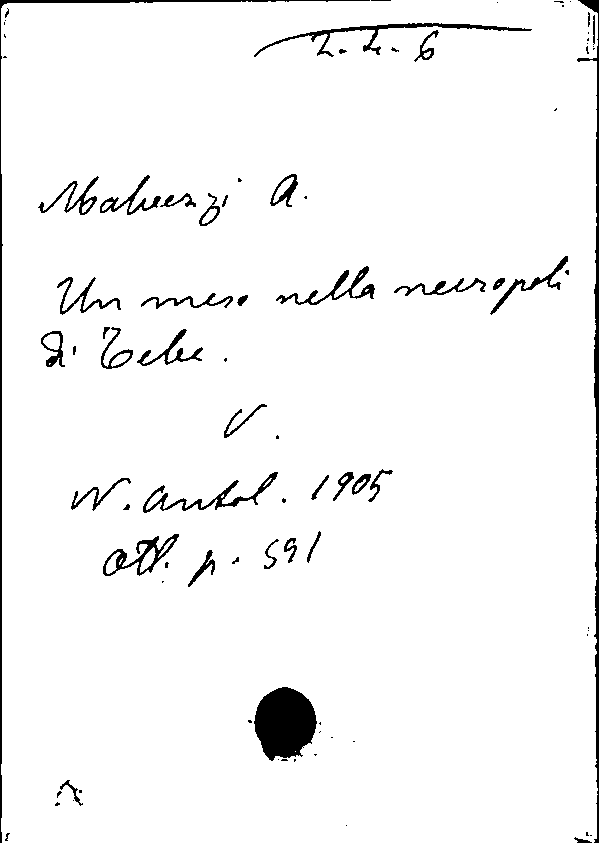 2-4-6
Malvezzi A.
Un mese nella necropoli
di Tebe.
V.
N. Antol. 1905
ott. p. 591